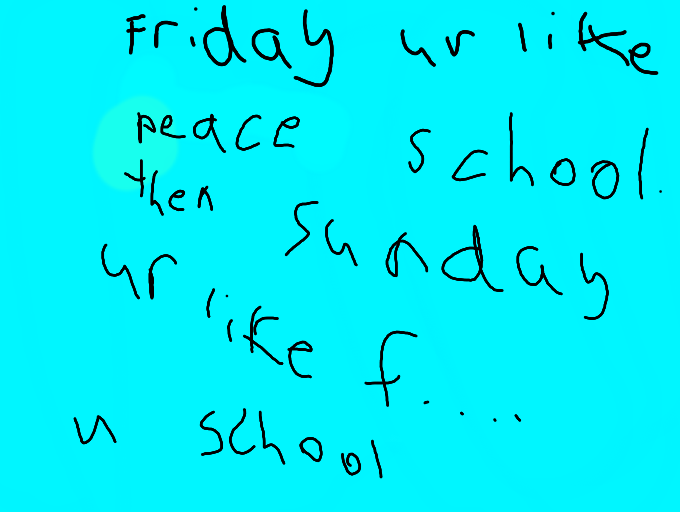 Friday ur like
peace school.
then Sunday
ur like f.....
u school